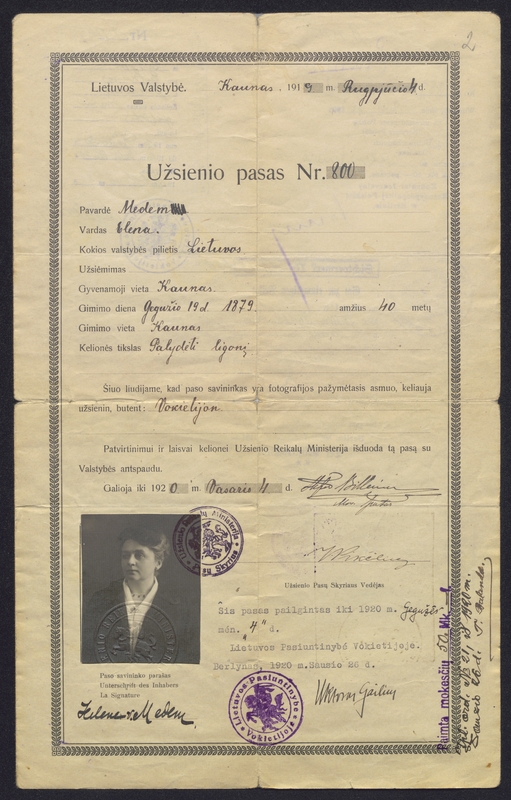 2
Lietuvos Valstybė. Kaunas. 1919 m. Rugpjūčio 4 d.
Užsienio pasas Nr. 800
Pavardė Medem
Vardas Elena.
Kokios valstybės pilietis Lietuvos
Užsiėmimas
Gyvenamoji vieta Kaunas.
Gimimo diena Gegužio 19 d. 1879. amžius 40 metų
Gimimo vieta Kaunas
Kelionės tikslas Palydėti ligonį
Šiuo liudijame, kad paso savininkas yra fotografijos pažymėtasis asmuo, keliauja
užsienin, butent: Vokietijon.
Patvirtinimui ir laisvai kelionei Užsienio Reikalų Ministerija išduoda tą pasą su
Valstybės antspaudu.
Galioja iki 1920 m. Vasario 4 d.
Užsienio Reikalų Ministerija
Pasų Skyrius
Užsienio Pasų Skyriaus Vedėjas
Šis pasas pailgintas iki 1920 m. Gegužės
mėn. "4" d.
Lietuvos Pasiuntinybė Vokietijoje.
Berlynas, 1920 m. Sausio 26 d.
Paso savininko parašas
Unterschrift des Inhabers
La Signature
Helene v. Medem
Lietuvos Pasiuntinybė
Vokietijoje
Paimta mokesčių 50 Mk.